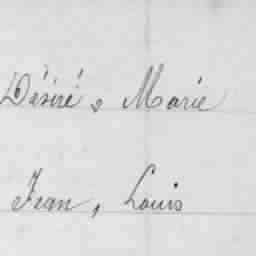 Désiré, Marie
Jean, Louis